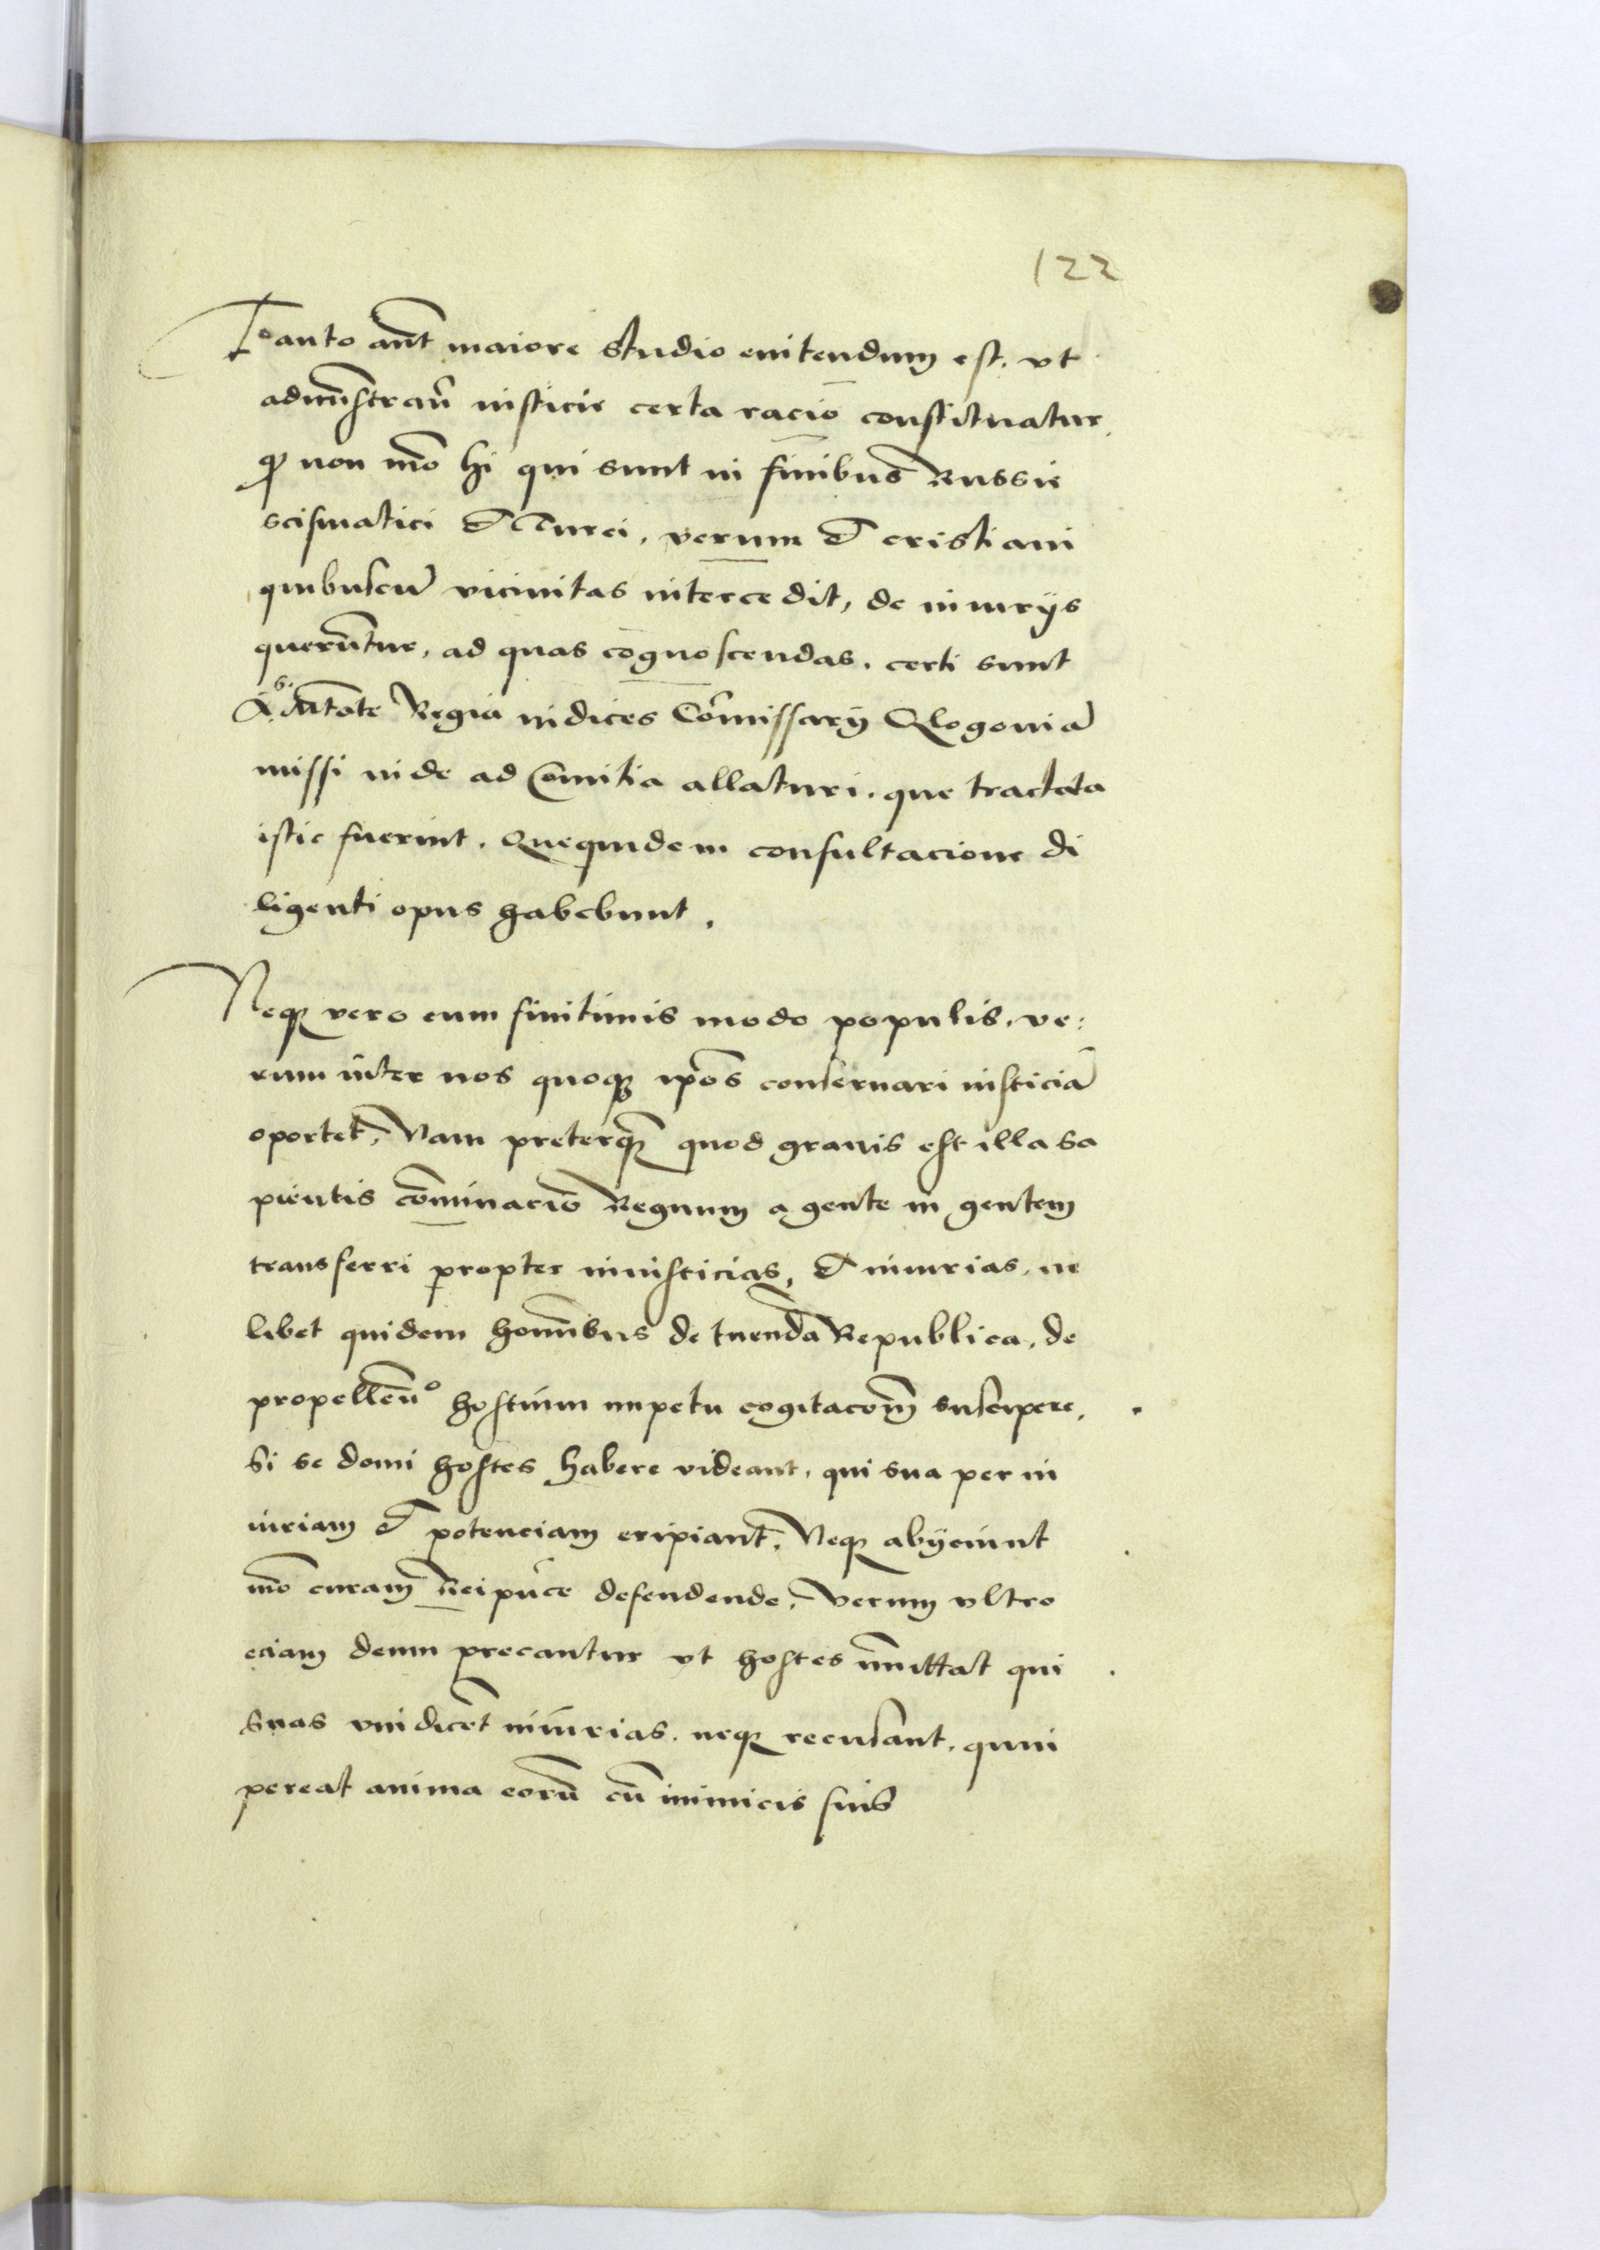 122
Tanto aūt maiore studio enitendum est. vt
admīstrañ iusticie certa racio constituatur.
qđ non mō hi qui sunt in finibus Russie
scismatici et Turci, verum et cristiani
quibuscū vicinitas intercedit, de iniurijs
querūtur, ad quas cognoscendas. certi sunt
Mtate Regia iudices Comissarij Glogouiā
missi inde ad Comitia allaturi. que tractata
istic fuerint. Quequidem consultacione di
ligenti opus habebunt.
Neqʒ vero cum finitimis modo populis. ve:
rum inter nos quoqʒ ipōs conseruari iusticiā
oportet, Nam preterqʒ quod grauis est illa sa
pientis cōminacio Regnum a gente in gentem
transferri propter iniusticias, et iniurias. ne
libet quidem homībus de tuenda Republica. de
propelleñº hostium impetu cogitacōm suscipere.
Si se domi hostes habere videant. qui sua per in
iuriam et potenciam eripiant. Neqʒ abijciunt
mō curam Reipūce defendende. Verum vltro
eciam deum precantur vt hostes īmittat qui
suas vindicēt iniurias. neqʒ recusant. quin
pereat anima eorū cū inimicis suis